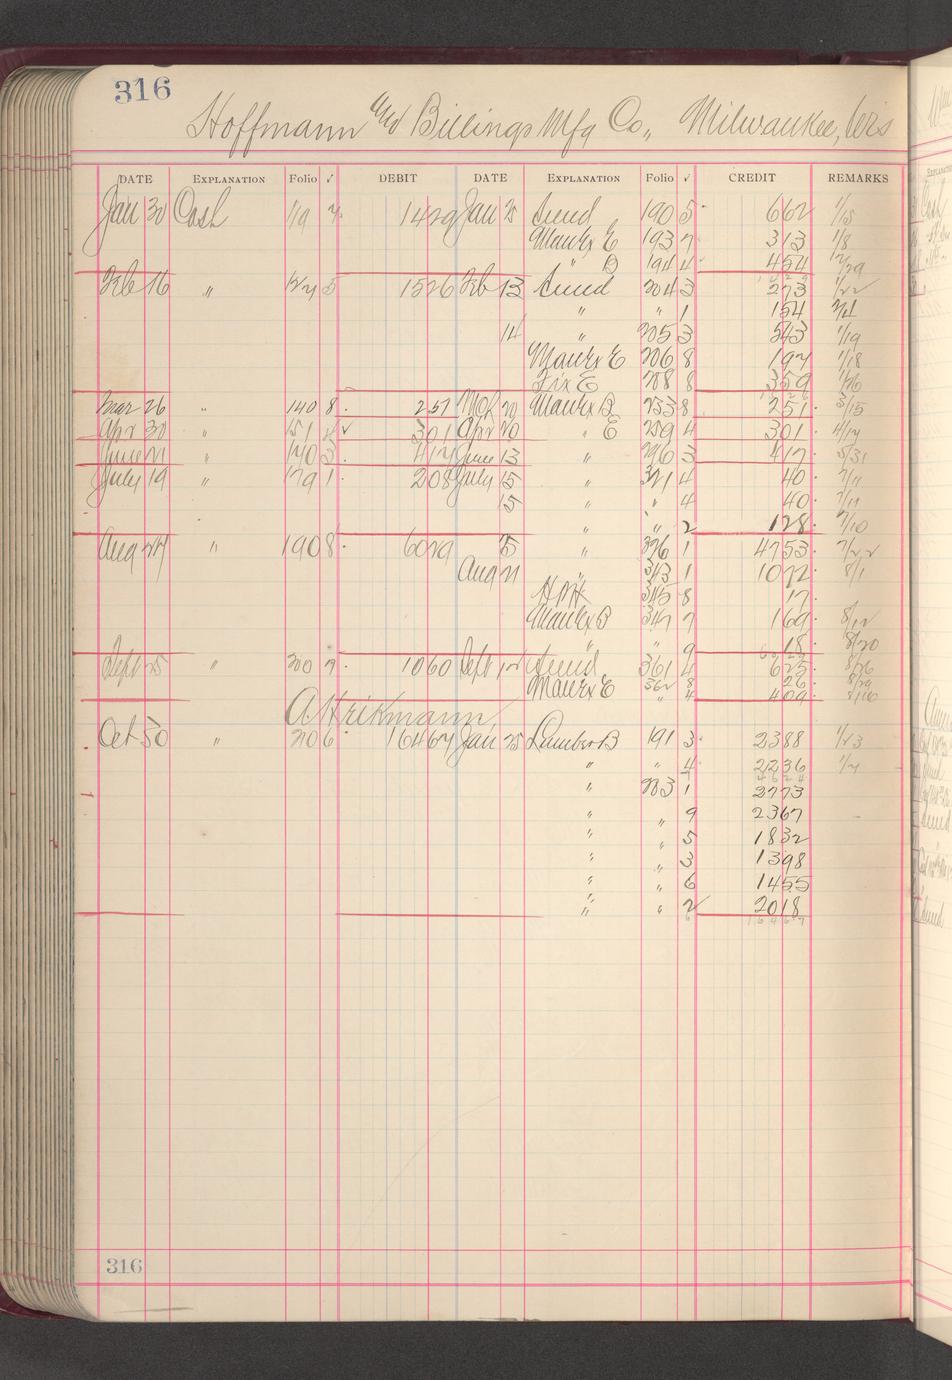 316
Hoffmann and Billings Mfg Co., Milwaukee, Wis
DATE EXPLANATION Folio ✓ DEBIT DATE EXPLANATION Folio ✓ CREDIT REMARKS
Jan 30 Cash 119 7 1429 Jan 25 Sund 190 5 662 1/15
Manex E 193 7 313 1/8
" B 194 4 454 1/29
1429
Feb 16 " 5 1526 Feb 13 Sund 204 3 273 1/22
" " 1 154
14 " 205 3 543 1/19
Manex E 206 8 197 1/18
Fix E 208 8 359 1/26
Mar 26 " 140 8 251 Mch 20 Manex B 233 8 251 3/15
Apr 30 " 151 ✓ 301 Apr 20 " E 259 4 301 4/17
June 21 " 170 3 417 June 13 " 296 3 417 5/31
July 19 " 179 1 208 July 15 " 321 4 40 7/11
15 " " 4 40 7/11
" " 2 128 7/10
Aug 27 " 190 8 6029 15 " 326 1 4753 7/22
Aug 21 " 343 1 1072 8/1
345 8 17
Manex B 347 7 169 8/12
" " 9 18 8/20
6029
Sept 25 " 200 7 1060 Sept 12 Sund 361 4 625 8/26
Manex E 362 8 26 8/29
" 4 409
Oct 30 " 206 16467 Jan 25 Lumber B 191 3 2388 1/23
" " 4 2236 1/7
4624
" 203 1 2773
" " 9 2367
" " 5 1832
" " 3 1398
" " 6 1455
" " 2 2018
16467
316